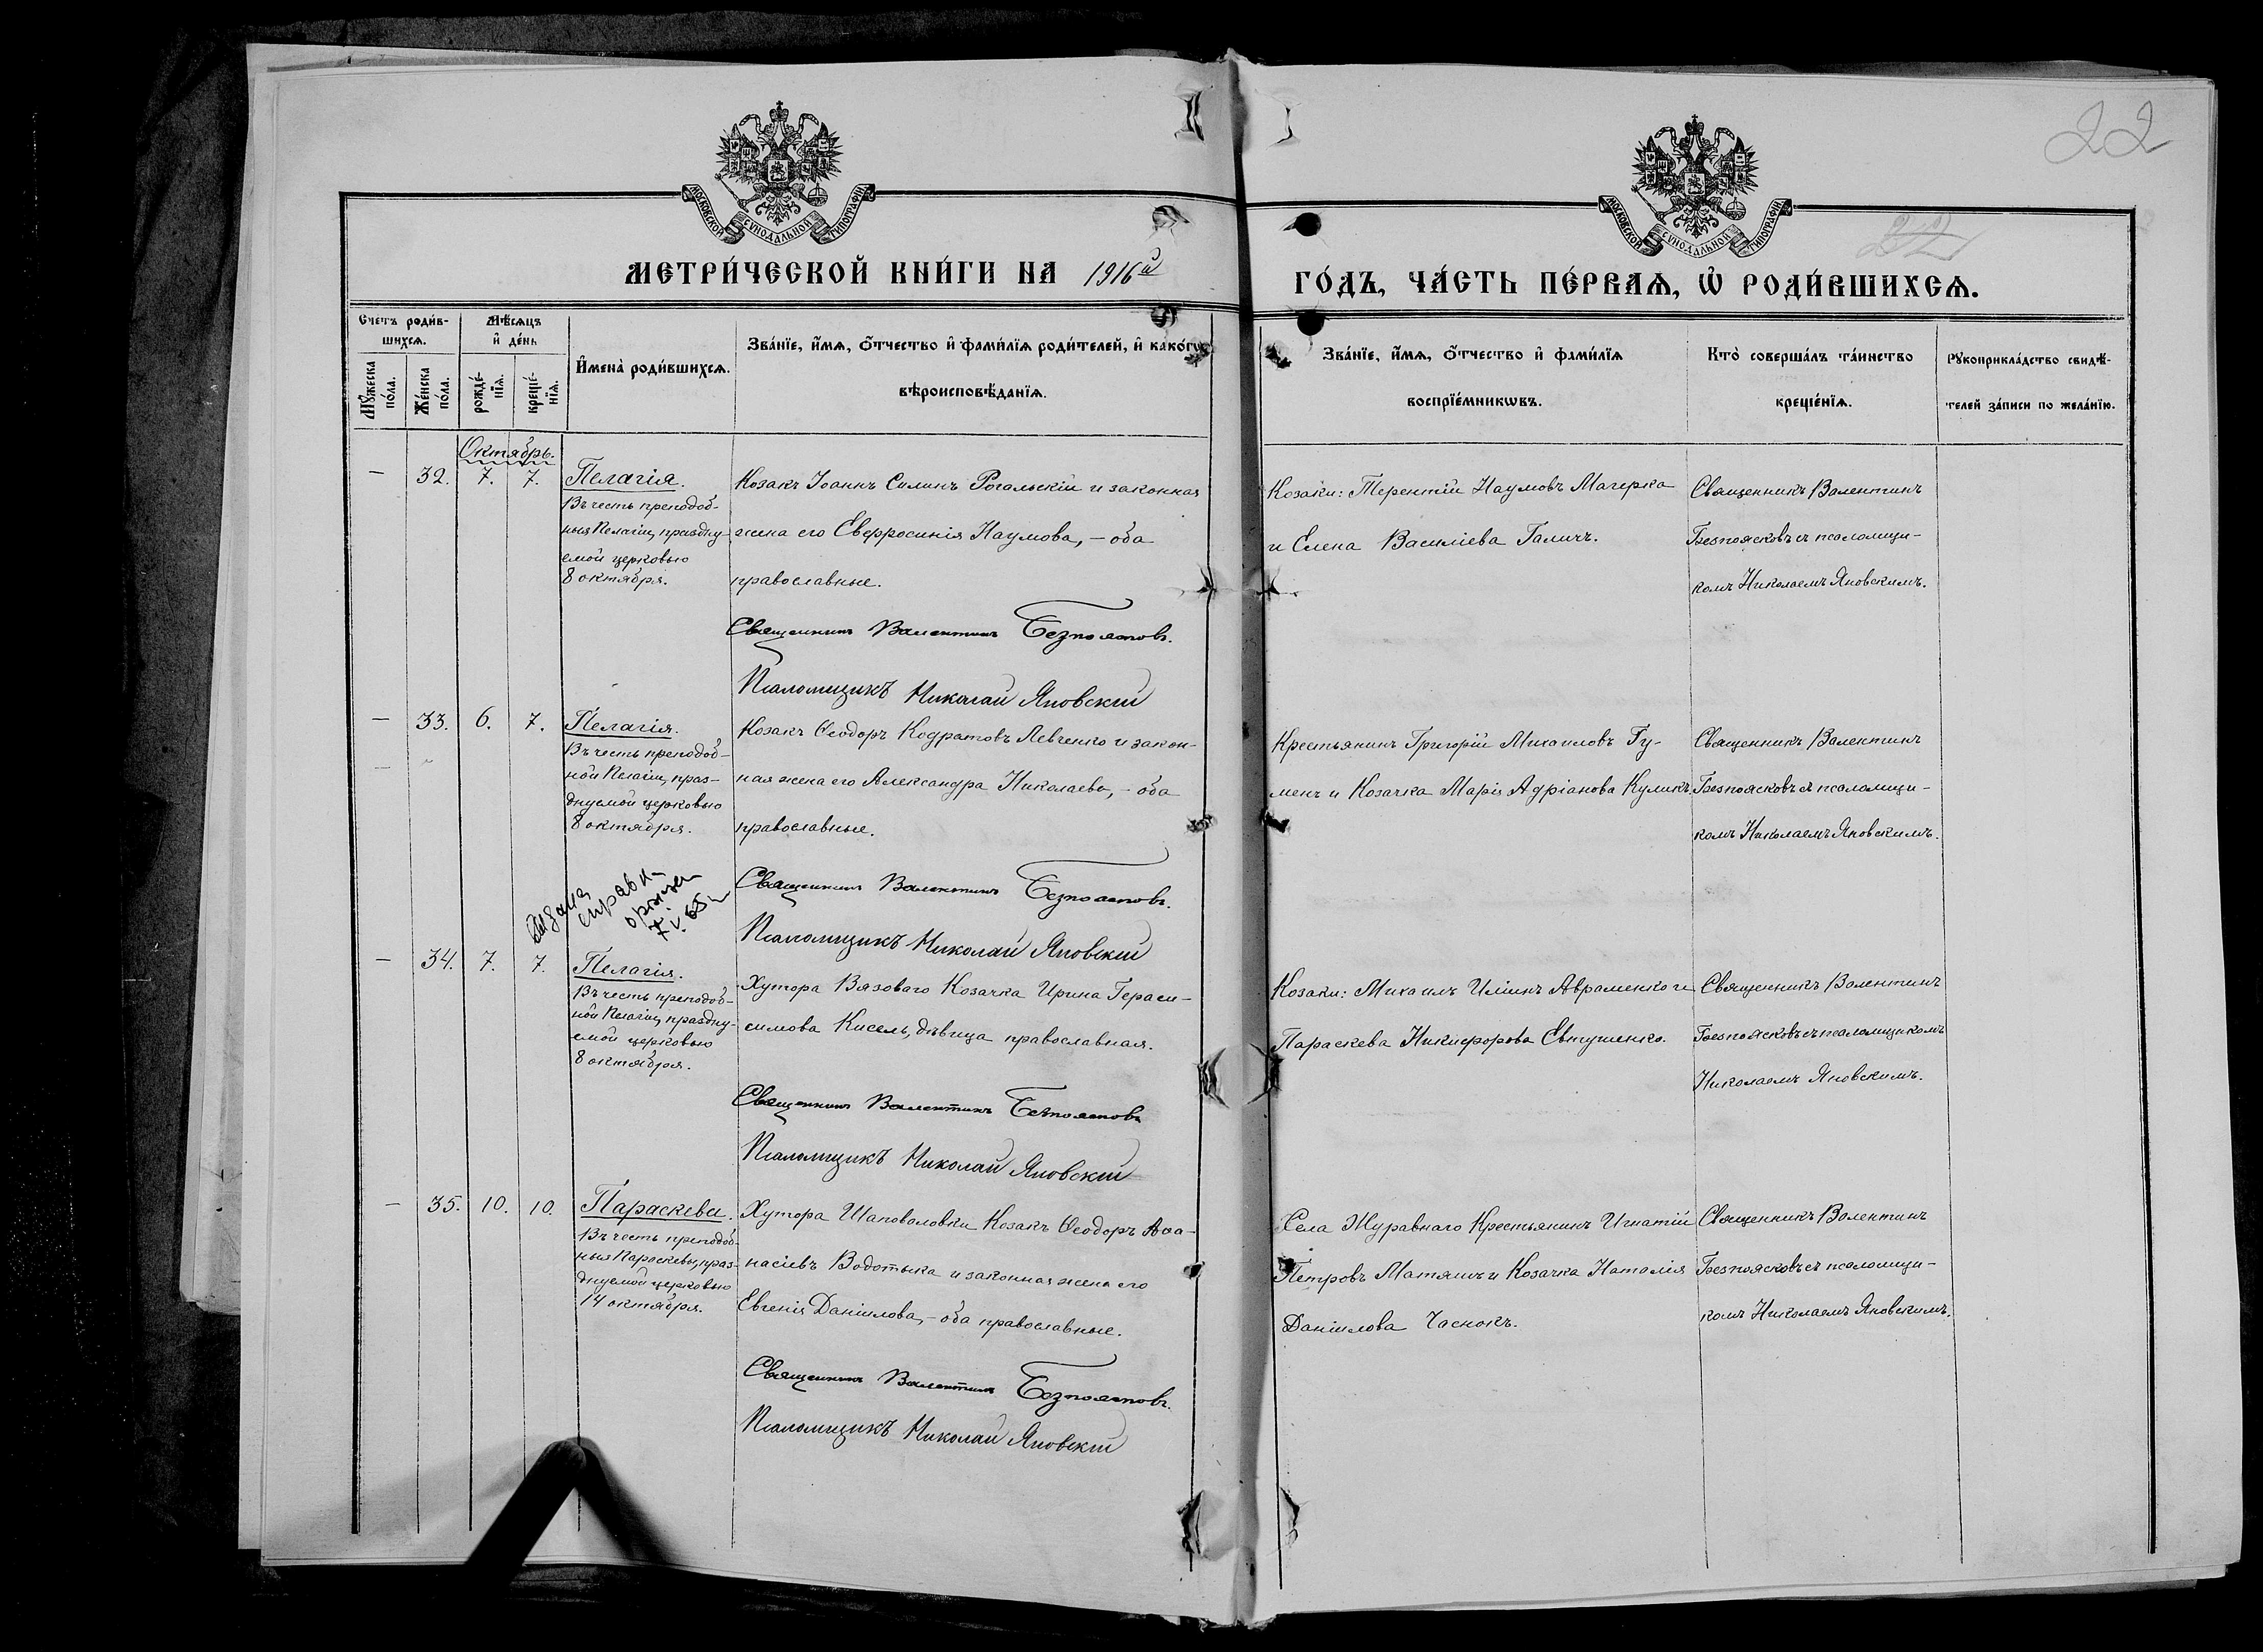 22
МОСКОВСКОЙ СУНОДАЛЬНОЙ ТИПОГРАФІИ
МОСКОВСКОЙ СУНОДАЛЬНОЙ ТИПОГРАФІИ
22
МЕТРИ́ЧЕСКОЙ КНИ́ГИ НА 1916й
ГО́ДЪ, ЧА́СТЬ ПЕ́РВАѦ, Ѡ҆ РОДИ́ВШИХСѦ.
Счетъ роди́в-
шихсѧ.
Мѣ́сѧцъ
и҆ де́нь
Му́жеска
по́ла.
Же́нска
по́ла.
рожде́-
нїѧ.
креще́-
нїѧ.
И҆мена̀ роди́вшихсѧ.
Зва́нїе, и҆́мѧ, ѻ҆́тчество и҆ фами́лїѧ роди́телей, и҆ како́гѡ
вѣроисповѣ́данїѧ.
Зва́нїе, и҆́мѧ, ѻ҆́тчество и҆ фами́лїѧ
воспрїе́мникѡвъ.
Кто̀ соверша́лъ та́инство
креще́нїѧ.
Рꙋкоприкла́дство свидѣ́-
телей за́писи по жела́нїю.
Октябрь.
— 32. 7. 7. Пелагія.
Въ честь преподоб-
ныя Пелагіи, праздну-
емой церковью
8 октября.
Козакъ Іоаннъ Силинъ Рогальскій и законная
жена его Евфросинія Наумова, – оба
православные.
Священникъ Валентинъ Безпоясковъ.
Псаломщикъ Николай Яновскій
Козаки: Терентій Наумовъ Магерка
и Елена Василіева Галичъ.
Священникъ Валентинъ
Безпоясковъ съ псаломщи-
комъ Николаемъ Яновскимъ.
— 33. 6. 7. Пелагія.
Въ честь преподоб-
ной Пелагіи, праз-
днуемой церковью
8 октября.
Козакъ Ѳеодоръ Кодратовъ Левченко и закон-
ная жена его Александра Николаева, – оба
православные.
Священникъ Валентинъ Безпоясковъ.
Псаломщикъ Николай Яновскій
Крестьянинъ Григорій Михаиловъ Гу-
менъ и Козачка Марія Адріанова Куликъ.
Священникъ Валентинъ
Безпоясковъ съ псаломщи-
комъ Николаемъ Яновскимъ.
выдана
справка
— 34. 7. 7. Пелагія.
Въ честь преподоб-
ной Пелагіи, праздну-
емой церковью
8 октября.
Хутора Вязоваго Козачка Ирина Гераси-
симова Кисель, дѣвица православная.
Священникъ Валентинъ Безпоясковъ
Псаломщикъ Николай Яновскій
Козаки: Михаилъ Иліинъ Авраменко и
Параскева Никифорова Евтушенко.
Священникъ Валентинъ
Безпоясковъ съ псаломщикомъ
Николаемъ Яновскимъ.
— 35. 10. 10. Параскева.
Въ честь преподоб-
ныя Параскевы, праз-
днуемой церковью
14 октября.
Хутора Шаповаловки Козакъ Ѳеодоръ Аѳа-
насіевъ Водотыка и законная жена его
Евгенія Даніилова, – оба православные.
Священникъ Валентинъ Безпоясковъ.
Псаломщикъ Николай Яновскій
Села Журавнаго Крестьянинъ Игнатій
Петровъ Матяшъ и Козачка Наталія
Даніилова Часнокъ.
Священникъ Валентинъ
Безпоясковъ съ псаломщи-
комъ Николаемъ Яновскимъ.